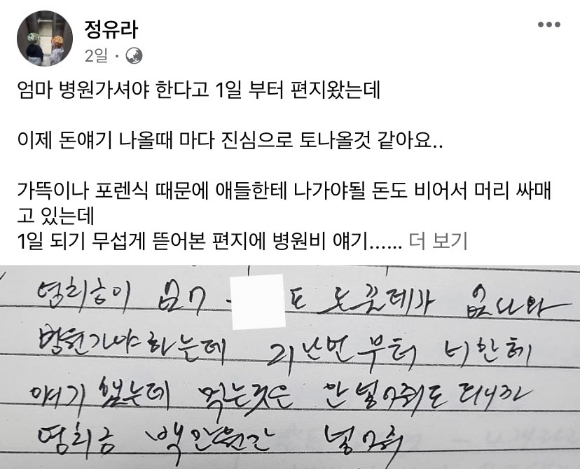 정유라
2일
엄마 병원가셔야 한다고 1일 부터 편지왔는데
이제 돈얘기 나올때 마다 진심으로 토나올것 같아요..
가뜩이나 포렌식 때문에 애들한테 나가야될 돈도 비어서 머리 싸매
고 있는데
1일 되기 무섭게 뜯어본 편지에 병원비 얘기...... 더 보기
영희금이 도 도꼴데가 없나와
병원가야하는데 지난번부터 너한테
얘기 했는데 먹는것은 안넣어줘도 되니까
영희금 백만원만 넣어줘